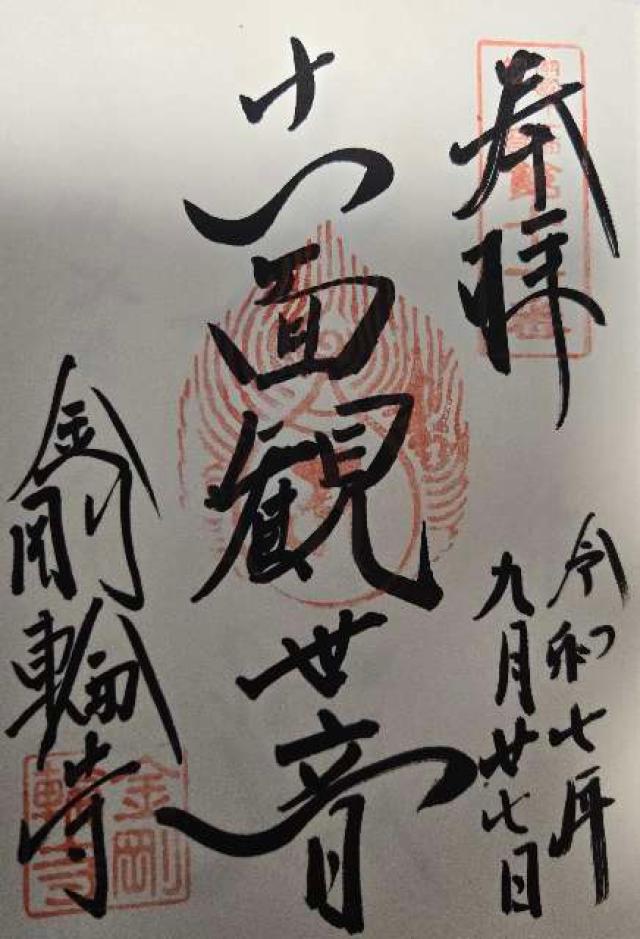 奉拝
令和七年
九月廿七日
十一面觀世音
金剛輪寺
金剛
輪寺